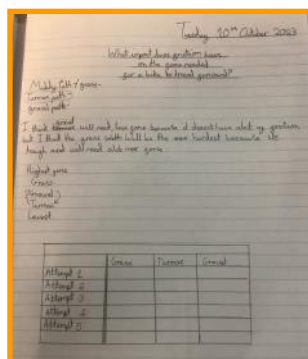 Tuesday 10th October 2023
What impact does friction have
on the force needed
for a bike to travel forward?
Muddy path / grass -
Tarmac path -
gravel path -
gravel
I think will need less force because it doesn't have alot of friction
but I think the grass will be the more hardest because its
tough and will need alot more force.
Highest force
Grass
(Gravel)
(Tarmac)
Lowest
Grass Tarmac Gravel
Attempt 1
Attempt 2
Attempt 3
attempt 4
Attempt 5